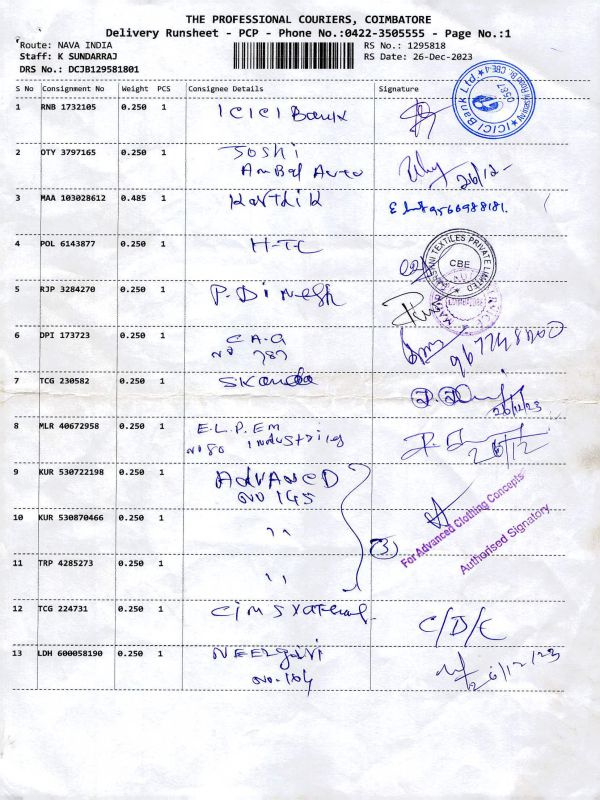 THE PROFESSIONAL COURIERS, COIMBATORE
Delivery Runsheet - PCP - Phone No.:0422-3505555 - Page No.:1
Route: NAVA INDIA
RS No.: 1295818
Staff: K SUNDARRAJ
RS Date: 26-Dec-2023
DRS No.: DCJB129581801
S No Consignment No Weight PCS Consignee Details Signature
1 RNB 1732105 0.250 1 ICICI Bank
ICICI Bank Ltd. CBE-4
0567
2 OTY 3797165 0.250 1 Joshi
Ambal Auto
26/12-
3 MAA 103028612 0.485 1 Karthik 9566988181.
4 POL 6143877 0.250 1 HTC
TEXTILES PRIVATE LIMITED
CBE
5 RJP 3284270 0.250 1 P. Dinesh
6 DPI 173723 0.250 1 C.A.G
No 787
7 TCG 230582 0.250 1 Skanda
26/12/23
8 MLR 40672958 0.250 1 E.L.P.EM
No 80 Industries
26/12
9 KUR 530722198 0.250 1 ADVANCED
NO 145
10 KUR 530870466 0.250 1 ''
(3)
For Advanced Clothing Concepts
Authorised Signatory
11 TRP 4285273 0.250 1 ''
12 TCG 224731 0.250 1
C/D/C
13 LDH 600058190 0.250 1 NEElgiri
No-104
26/12/23